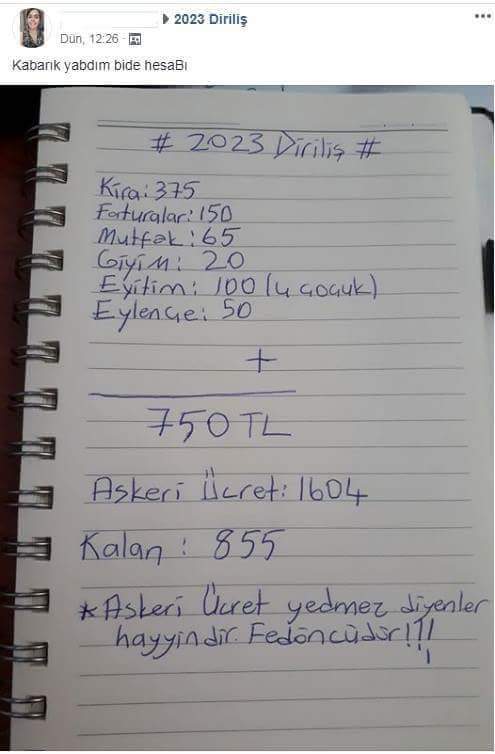 2023 Diriliş
Dün, 12:26
Kabarık yabdım bide hesaBı
# 2023 Diriliş #
Kira: 375
Faturalar: 150
Mutfak: 65
Giyim: 20
Eyitim: 100 (4 çocuk)
Eylençe: 50
+
750 TL
Askeri Ücret: 1604
Kalan : 855
*Askeri Ücret yedmez diyenler
hayyindir. Fedöncüdür!!!!